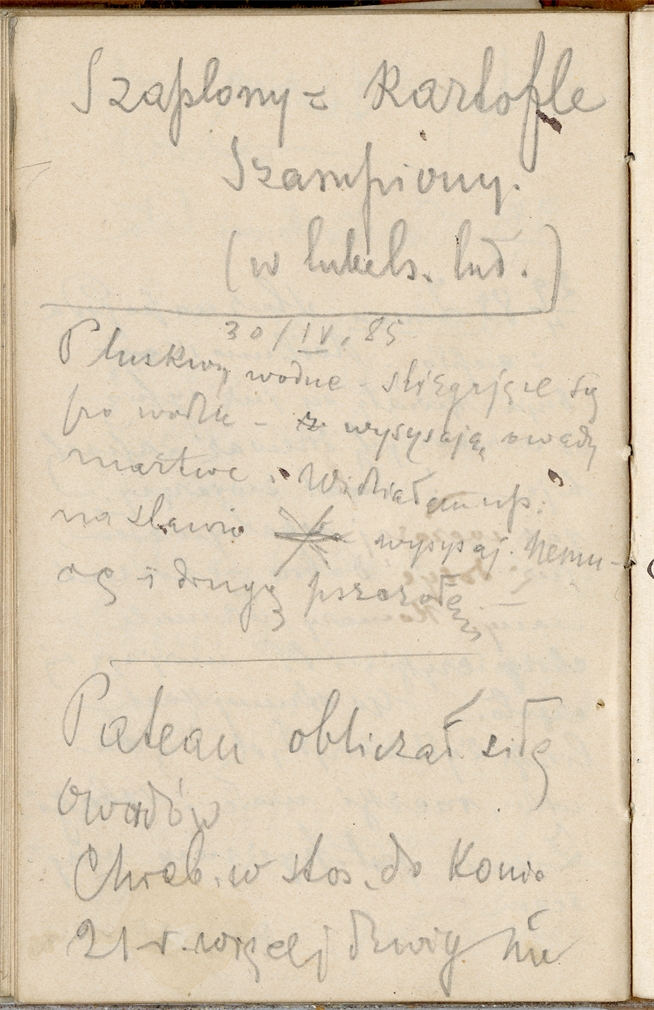 Szaplony = Kartofle
Szampiony.
(w lubels. lud.)
30/IV. 85
Pluskwy wodne - ślizgające się
po wodzie - wysysają owady
martwe. Widziałem np.
na stawie wysysaj. Nemu-
og i drugą pszczołę
Plateau obliczał siłę
owadów
Chrab. w stos. do Konia
21 r. więcej dźwig. nie